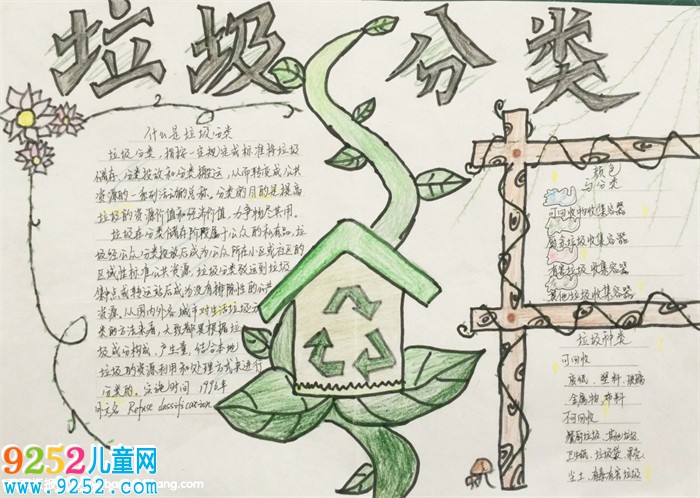 垃圾分类
什么是垃圾分类
垃圾分类,指按一定规定或标准将垃圾
储存、分类投放和分类搬运,从而转变成公共
资源的一系列活动的总称。分类的目的是提高
垃圾的资源价值和经济价值,力争物尽其用。
垃圾在分类储存阶段属于公众的私有品,垃
圾经公众分类投放后成为公众所在小区或社区的
区域性标准公共资源,垃圾分类驳运到垃圾
集中点或转运站后成为没有排除性的公共
资源。从国内外各城市对生活垃圾分
类的方法来看,大致都是根据垃
圾成分构成、产生量,结合本地
垃圾的资源利用和处理方式来进行
分类的。实施时间 199
外文名 Refuse classification
颜色
与分类
可回收物收集容器
垃圾收集容器
有害垃圾收集容器
其他垃圾收集容器
垃圾种类
可回收
废纸、塑料、玻璃
金属物、布料
不可回收
餐厨垃圾、其他垃圾
卫生纸、垃圾袋、果壳
尘土、有毒有害垃圾
9252儿童网
www.9252.com